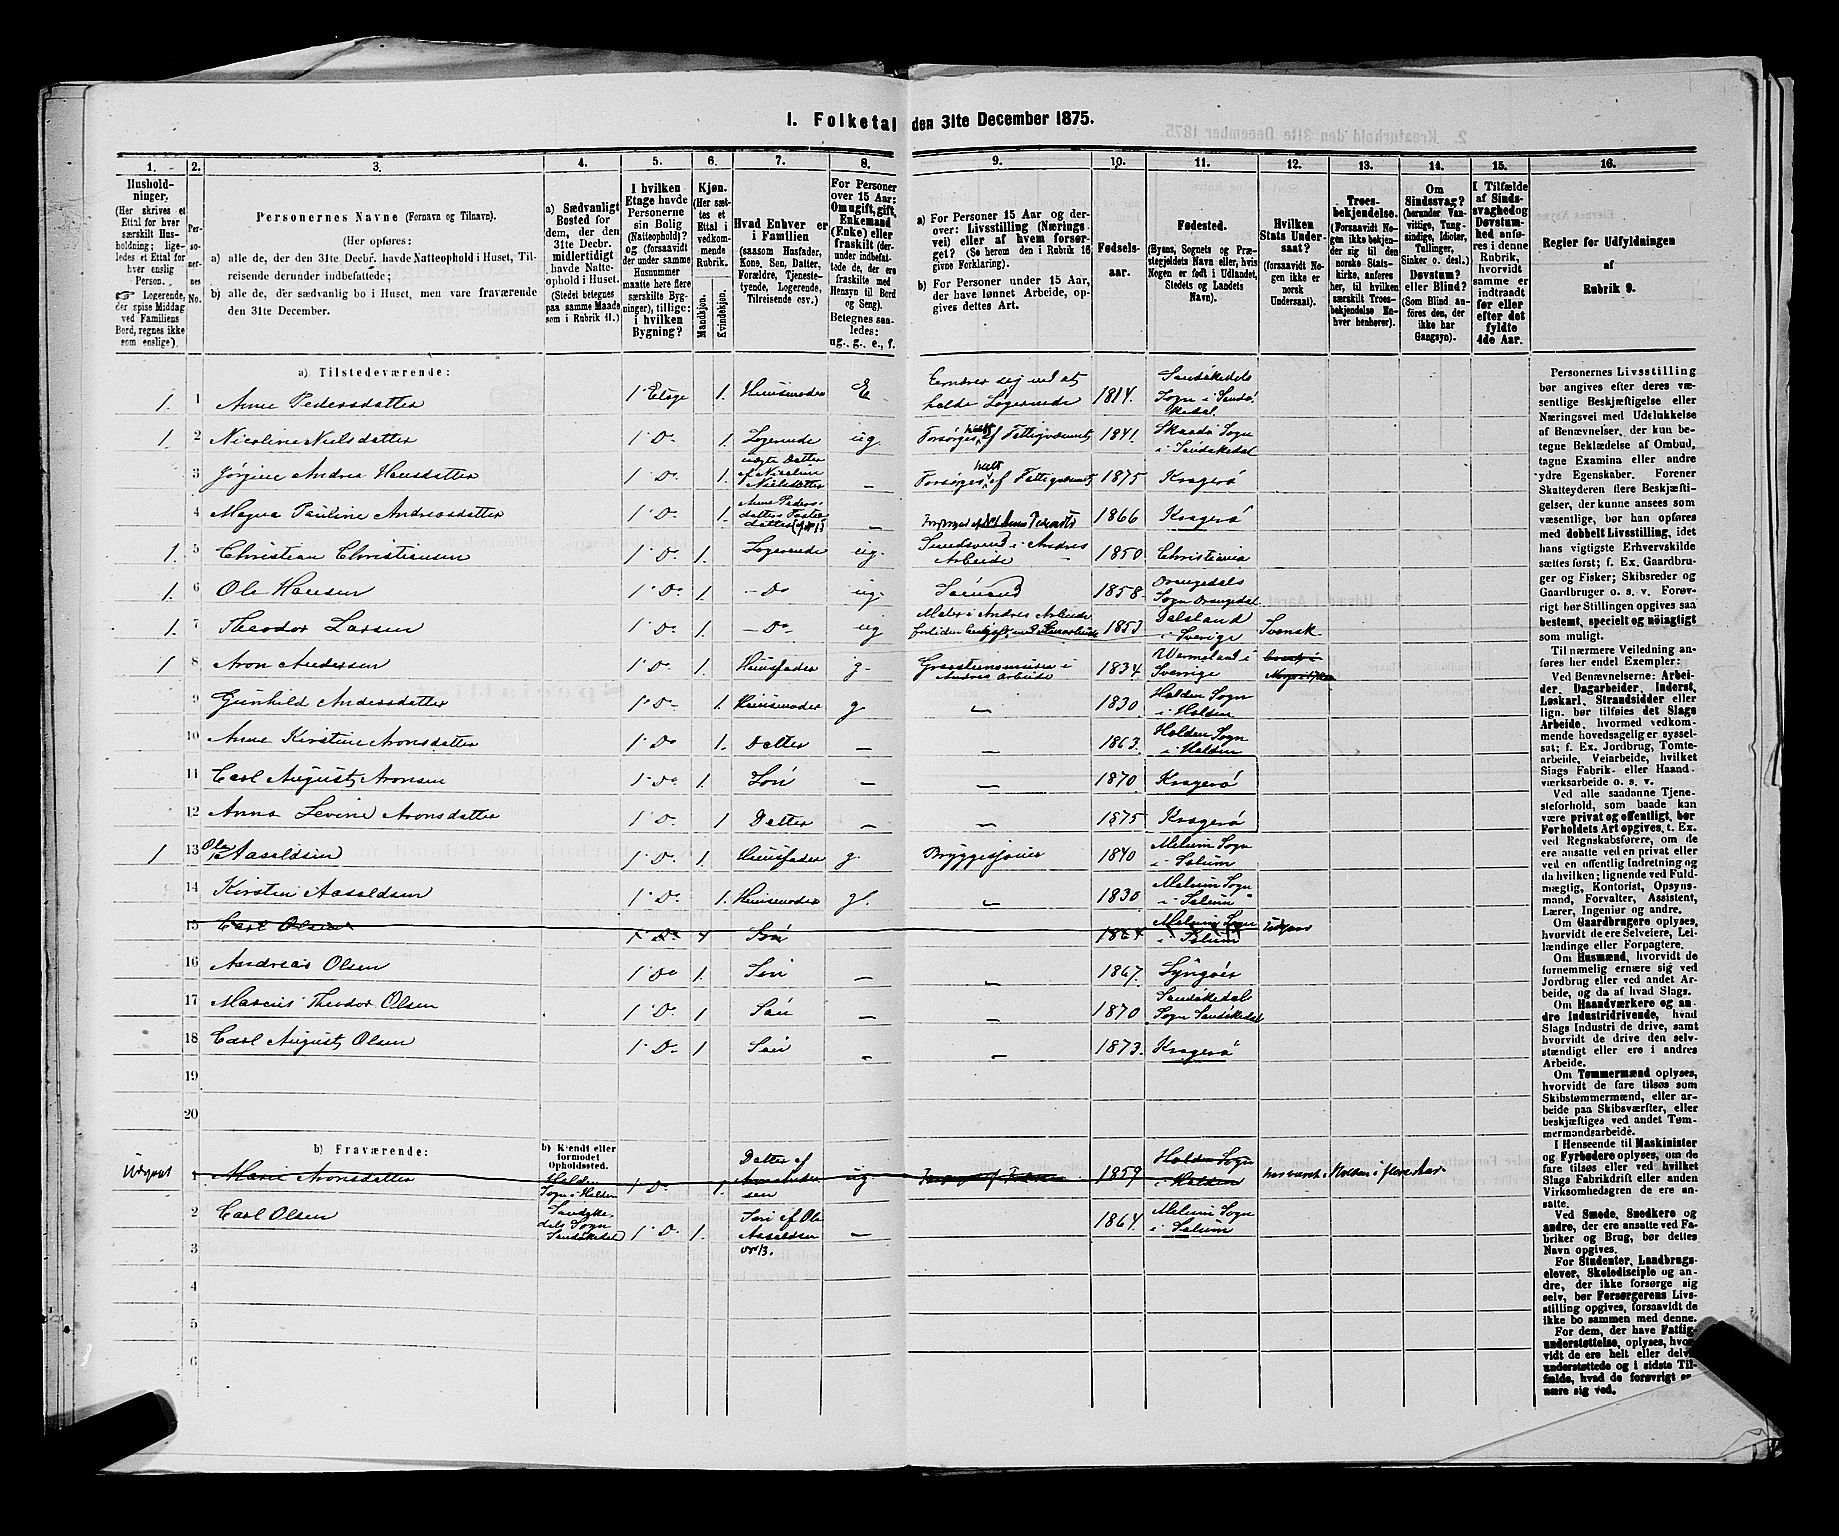 I. Folketal den 31te December 1875.
1. 2. 3. 4. 5. 6. 7. 8. 9. 10. 11. 12. 13. 14. 15. 16.
Hushold-
ninger.
(Her skrives et
Ettal for hver
særskilt Hus-
holdning; lige-
ledes et Ettal for
hver enslig
Person.
☞ Logerende,
der spise Middag
ved Familiens
Bord, regnes ikke
som enslige).
Per-
so-
ner-
nes
No.
Personernes Navne (Fornavn og Tilnavn).
(Her opføres:
a) alle de, der den 31te Decbr. havde Natteophold i Huset, Til-
reisende derunder indbefattede;
b) alle de, der sædvanlig bo i Huset, men vare fraværende
den 31te December.
a) Sædvanligt
Bosted for
dem, der den
31te Decbr.
midlertidigt
havde Natte-
ophold i Huset.
(Stedet betegnes
paa samme Maade
som i Rubrik 11.)
I hvilken
Etage havde
Personerne
sin Bolig
(Natteophold)?
og (forsaavidt
der under samme
Husnummer
maatte høre flere
særskilte Byg-
ninger), tillige:
i hvilken
Bygning?
Kjøn.
(Her sæt-
tes et
Ettal i
vedkom-
mende
Rubrik.
Mandkjøn.
Kvindekjøn.
Hvad Enhver er
i Familien
(saasom Husfader,
Kone, Søn, Datter,
Forældre, Tjeneste-
tyende, Logerende,
Tilreisende osv.)
For Personer
over 15 Aar:
Om ugift, gift,
Enkemand
(Enke) eller
fraskilt (der-
under indbefat-
tede de, der ere
fraskilte med
Hensyn til Bord
og Seng).
Betegnes saa-
ledes:
ug., g., e., f.
a) For Personer 15 Aar og der-
over: Livsstilling (Nærings
vei) eller af hvem forsør-
get? (Se herom den i Rubrik 16
givne Forklaring).
b) For Personer under 15 Aar,
der have lønnet Arbeide, op-
gives dettes Art.
Fødsels-
aar.
Fødested.
(Byens, Sognets og Præ-
stegjeldets Navn eller, hvis
Nogen er født i Udlandet,
Stedets og Landets
Navn).
Hvilken
Stats Under-
saat?
(forsaavidt No-
gen ikke er
norsk
Undersaat).
Troes-
bekjendelse.
(Forsaavidt No-
gen ikke bekjen-
der sig til den
norske Stats-
kirke, anføres
her, til hvilken
særskilt Troes-
bekjendelse En-
hver henhører).
Om
Sindssvag?
(herunder Van-
vittige, Tung-
sindige, Idioter,
Tullinger,
Sinker o. desl.)
Døvstum?
eller Blind?
(Som Blind an-
føres den, der
ikke har
Gangsyn).
I Tilfælde
af Sinds-
svaghed og
Døvstum-
hed anfø-
res i denne
Rubrik,
hvorvidt
samme er
indtraadt
før eller
efter det
fyldte
4de Aar.
Regler for Udfyldningen
af
Rubrik 9.
a) Tilstedeværende:
1. 1 Anne Pedersdatter 1 Etage 1. Huusmoder E Ernærer sig ved at holde Logerende 1814. Sandøkedals Sogn i Sandøkedal.
1. 2 Nicoline Nielsdatter 1 Do 1. Logerende ug Forsørges helt af Fattigvæsenet 1841. Skaadø Sogn i Sandøkedal
3 Jørgine Andrea Hansdatter 1 Do 1. uægte Datter af Nicoline Nielsdatter — Forsørges helt af Fattigvæsenet 1875 Kragerø
4 Magna Pauline Andreasdatter 1 Do 1. Anne Pedersdatters Datter — 1866 Kragerø
1. 5 Christian Christiansen 1 Do 1. Logerende ug. i Andres Arbeide 1850. Christiania
1. 6 Ole Hansen 1 Do 1. — Do ug. Sømand 1858. Drangedals Sogn Drangedal
1. 7 Theodor Larsen 1 Do 1. — Do ug Maler i Andres Arbeide 1853 Dalsland i Sverige Svensk
1 8 Aron Andersen 1 Do 1. Huusfader g. i Andres Arbeide 1834. Wermeland i Sverige
9 Gunhild Andersdatter 1 Do 1. Huusmoder g. — 1830 Holden Sogn i Holden
10 Anne Kirstine Aronsdatter 1 Do 1. Datter — — 1863. Holden Sogn i Holden
11 Carl August Aronsen 1 Do 1 Søn — — 1870. Kragerø
12 Anna Levine Aronsdatter 1 Do 1 Datter — — 1875 Kragerø
1 13 Ole Aasoldsen 1 Do 1. Huusfader g. Bryggesjouer 1840 Melum Sogn i Solum
14 Kirsten Aasoldsen 1 Do 1. Huusmoder g. — 1830 Melum Sogn i Solum
15 Carl Olsen 1 Do 1 Søn 1864 Melum Sogn i Solum Udgaar
16 Andreas Olsen 1 Do 1 Søn — — 1867. Lyngøer
17 Marcus Theodor Olsen 1 Do 1 Søn — — 1870 Sandøkedal Sogn Sandøkedal
18 Carl August Olsen 1 Do 1 Søn — — 1873. Kragerø
19
20
b) Fraværende:
b) Kjendt eller
formodet
Opholdssted.
Udgaaet 1 Marie Aronsdatter Holden Sogn i Holden 1 Do 1. Datter af Aron Andersen ug. 1859 Holden Sogn i Holden
2 Carl Olsen Sandøkedals Sogn Sandøkedal 1 Do 1. Søn af Ole Aasoldsen No 13. — 1864. Melum Sogn i Solum
3
4
5
6
Personernes Livsstilling
bør angives efter deres væ-
sentlige Beskjæftigelse eller
Næringsvei med Udelukkelse
af Benævnelser, der kun be-
tegne Beklædelse af Ombud,
tagne Examina eller andre
ydre Egenskaber. Forener
Skatteyderen flere Beskjæfti-
gelser, der kunne ansees som
væsentlige, bør han opføres
med dobbelt Livsstilling, idet
hans vigtigste Erhvervskilde
sættes først; f. Ex. Gaardbru-
ger og Fisker; Skibsreder og
Gaardbruger o. s. v. Forøv-
rigt bør Stillingen opgives saa
bestemt, specielt og nøiagtigt
som muligt.
Til nærmere Veiledning an-
føres her endel Exempler:
Ved Benævnelserne: Arbei-
der, Dagarbeider, Inderst,
Løskarl, Strandsidder eller
lign. bør tilføies det Slags
Arbeide, hvormed vedkom-
mende hovedsagelig er syssel-
sat; f. Ex. Jordbrug, Tomte-
arbeide, Veiarbeide, hvilket
Slags Fabrik- eller Haand-
værksarbeide o. s. v.
Ved alle saadanne Tjene-
steforhold, som baade kan
være privat og offentligt, bør
Forholdets Art opgives, t. Ex.
ved Regnskabsførere, om de
ere ansatte ved en privat eller
ved en offentlig Indretning og
da hvilken; lignende ved Fuld-
mægtig, Kontorist, Opsyns-
mand, Forvalter, Assistent,
Lærer, Ingeniør og andre.
Om Gaardbrugere oplyses,
hvorvidt de ere Selveiere, Lei-
lændinge eller Forpagtere.
Om Husmænd, hvorvidt de
fornemmelig ernære sig ved
Jordbrug eller ved andet Ar-
beide, og da af hvad Slags.
Om Haandværkere og an-
dre Industridrivende, hvad
Slags Industri de drive, samt
hvorvidt de drive den selv-
stændigt eller ere i andres
Arbeide.
Om Tømmermænd oplyses,
hvorvidt de fare tilsøs som
Skibstømmermænd, eller ar-
beide paa Skibsværfter, eller
beskjæftiges ved andet Tøm-
mermandsarbeide.
I Henseende til Maskinister
og Fyrbødere oplyses, om de
fare tilsøs eller ved hvilket
Slags Fabrikdrift eller anden
Virksomhedsgren de ere an-
satte.
Ved Smede, Snedkere og
andre, der ere ansatte ved Fa-
briker og Brug, bør dettes
Navn opgives.
For Studenter, Landbrugs-
elever, Skoledisciple og an-
dre, der ikke forsørge sig
selv, bør Forsørgerens Livs-
stilling opgives, forsaavidt de
ikke bo sammen med denne.
For dem, der have Fattig-
understøttelse, oplyses, hvor-
vidt de ere helt eller delvis
understøttede og i sidste Til-
fælde, hvad de forøvrigt er-
nære sig ved.